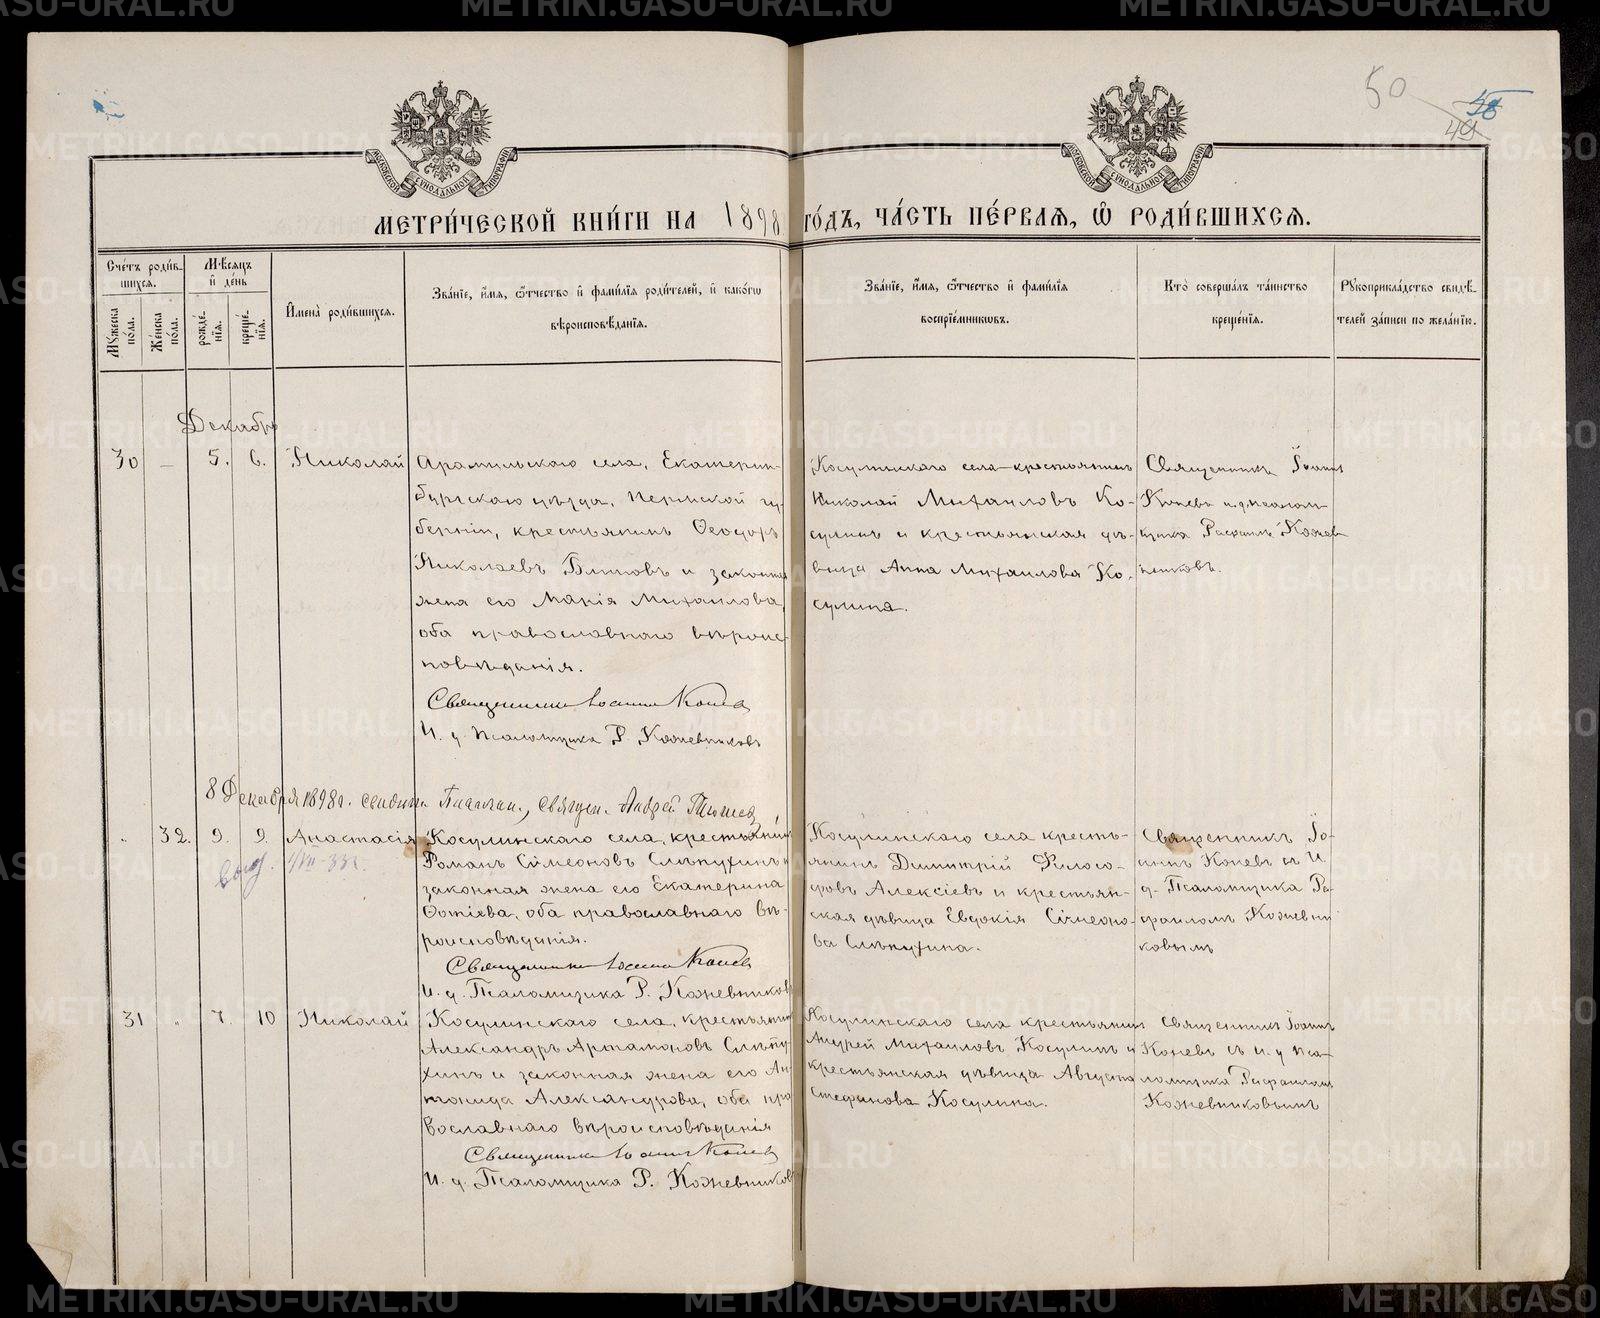 МЕТРИ́ЧЕСКОЙ КНИ́ГИ НА 1898 ГО́ДЪ, ЧА́СТЬ ПЕ́РВАЯ, Ѽ РОДИ́ВШИХСЯ.
50
49
Сче́тъ роди́в-
шихся.
Мѣ́сяцъ
и҆ де́нь
Мꙋ́жеска
по́ла.
Же́нска
по́ла.
рожде́-
нїя.
креще́-
нїя.
И҆мена̀ роди́вшихся.
Зва́нїе, и҆́мя, ѻ҆́тчество и҆ фами́лїя роди́телей, и҆ како́гѡ
вѣроисповѣ́данїя.
Зва́нїе, и҆́мя, ѻ҆́тчество и҆ фами́лїя
воспрїе́мникѡвъ.
Кто̀ соверша́лъ та́инство
креще́нїя.
Рꙋкоприкла́дство свидѣ́-
телей за́писи по жела́нїю.
Декабрь
30 — 5. 6. Николай
Арамильскаго села, Екатерин-
бургскаго уѣзда, Пермской гу-
берніи, крестьянинъ Ѳеодоръ
Николаевъ Блиновъ и законная
жена его Марія Михаилова,
оба православнаго вѣроис-
повѣданія.
Священникъ Іоаннъ Коневъ
И. д. Псаломщика Р. Кожевниковъ
Косулинскаго села крестьянинъ
Николай Михаиловъ Ко-
сулинъ и крестьянская дѣ-
вица Анна Михаилова Ко-
сулина.
Священникъ Іоаннъ
Коневъ и. д. псалом-
щика Рафаилъ Кожев-
никовъ.
8 Декабря 1898 г. Священ. Андрей
" 32. 9. 9. Анастасія
Косулинскаго села, крестьянинъ
Романъ Сѵмеоновъ Слѣпухинъ и
законная жена его Екатерина
Фотіева, оба православнаго вѣ-
роисповѣданія.
Священникъ Іоаннъ Коневъ
И. д. Псаломщика Р. Кожевниковъ
Косулинскаго села кресть-
янинъ Димитрій Филосо-
фовъ Алексіевъ и крестьян-
ская дѣвица Евдокія Сѵмеоно-
ва Слѣпухина.
Священникъ Іо-
аннъ Коневъ съ И.
д. Псаломщика Ра-
фаиломъ Кожевни
ковымъ
31 " 7. 10 Николай
Косулинскаго села, крестьянинъ
Александръ Артамоновъ Слѣпу-
хинъ и законная жена его Ан-
тонида Александрова, оба пра
вославнаго вѣроисповѣданія
Священникъ Іоаннъ Коневъ
И. д. Псаломщика Р. Кожевниковъ
Косулинскаго села крестьянинъ
Андрей Михаиловъ Косулинъ и
крестьянская дѣвица Августа
Стефанова Косулина.
Священникъ Іоаннъ
Коневъ съ и. д. пса-
ломщика Рафаиломъ
Кожевниковымъ
METRIKI.GASO-URAL.RU